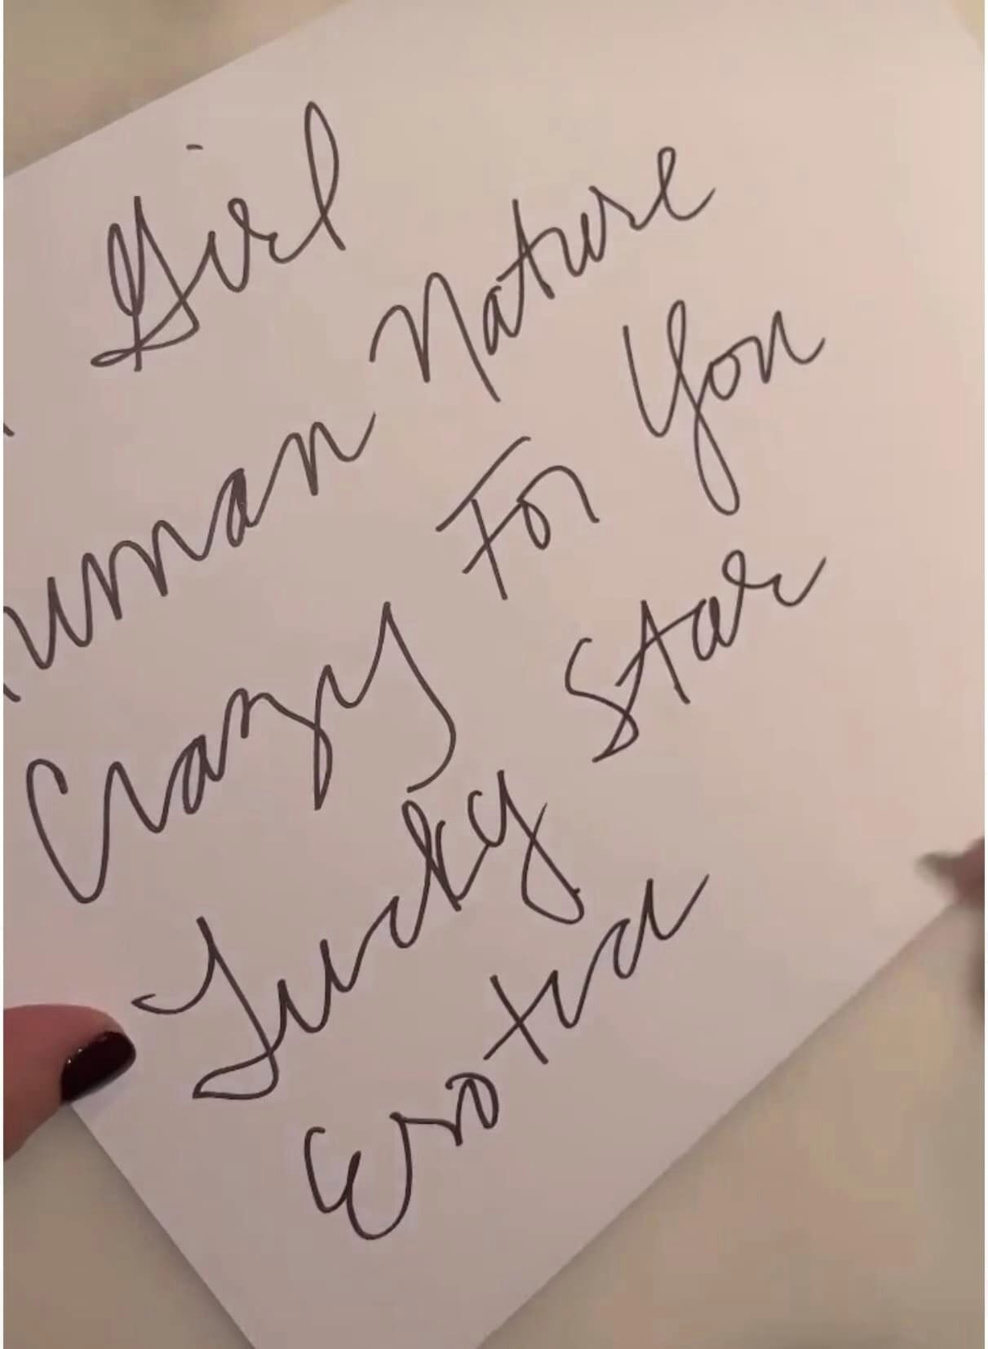 Girl
uman Nature
Crazy For You
Lucky Star
Erotica